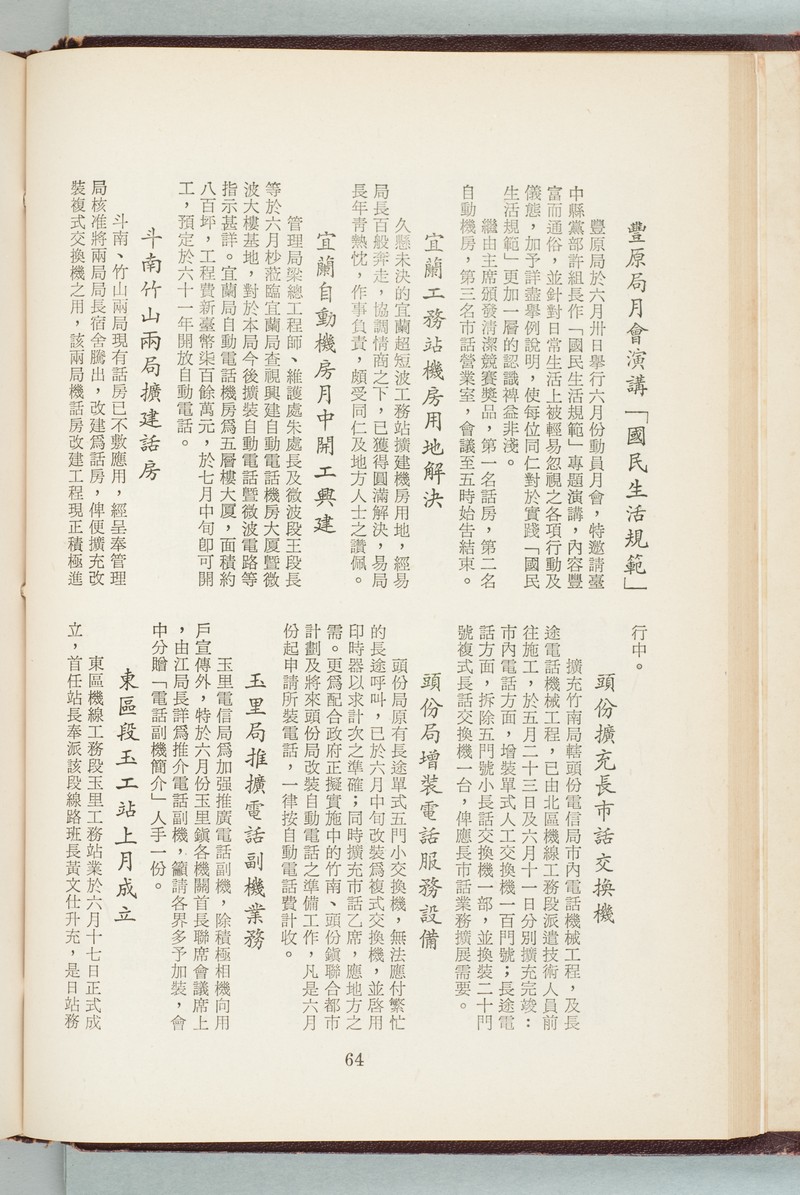 豐原局月會演講「國民生活規範」
豐原局於六月卅日舉行六月份動員月會，特邀請臺
中縣黨部許組長作「國民生活規範」專題演講，內容豐
富而通俗，並針對日常生活上被輕易忽視之各項行動及
儀態，加予詳盡舉例說明，使每位同仁對於實踐「國民
生活規範」更加一層的認識裨益非淺。
繼由主席頒發清潔競賽獎品，第一名話房，第二名
自動機房，第三名市話營業室，會議至五時始告結束。
宜蘭工務站機房用地解決
久懸未決的宜蘭超短波工務站擴建機房用地，經易
局長百般奔走，協調情商之下，已獲得圓滿解決，易局
長年青熱忱，作事負責，頗受同仁及地方人士之讚佩。
宜蘭自動機房月中開工興建
管理局梁總工程師、維護處朱處長及微波段王段長
等於六月杪蒞臨宜蘭局查視興建自動電話機房大厦暨微
波大樓基地，對於本局今後擴裝自動電話暨微波電路等
指示甚詳。宜蘭局自動電話機房爲五層樓大厦，面積約
八百坪，工程費新臺幣柒百餘萬元，於七月中旬卽可開
工，預定於六十一年開放自動電話。
斗南竹山兩局擴建話房
斗南、竹山兩局現有話房已不敷應用，經呈奉管理
局核准將兩局局長宿舍騰出，改建爲話房，俾便擴充改
裝複式交換機之用，該兩局機話房改建工程現正積極進
行中。
頭份擴充長市話交換機
擴充竹南局轄頭份電信局市內電話機械工程，及長
途電話機械工程，已由北區機線工務段派遣技術人員前
往施工，於五月二十三日及六月十一日分別擴充完竣：
市內電話方面，增裝單式人工交換機一百門號；長途電
話方面，拆除五門號小長話交換機一部，並換裝二十門
號複式長話交換機一台，俾應長市話業務擴展需要。
頭份局增裝電話服務設備
頭份局原有長途單式五門小交換機，無法應付繁忙
的長途呼叫，已於六月中旬改裝爲複式交換機，並啓用
印時器以求計次之準確；同時擴充市話乙席，應地方之
需。更爲配合政府正擬實施中的竹南、頭份鎭聯合都市
計劃及將來頭份局改裝自動電話之準備工作，凡是六月
份起申請所裝電話，一律按自動電話費計收。
玉里局推擴電話副機業務
玉里電信局爲加强推廣電話副機，除積極相機向用
戶宣傳外，特於六月份玉里鎭各機關首長聯席會議席上
，由江局長詳爲推介電話副機，籲請各界多予加裝，會
中分贈「電話副機簡介」人手一份。
東區段玉工站上月成立
東區機線工務段玉里工務站業於六月十七日正式成
立，首任站長奉派該段線路班長黃文仕升充，是日站務
64